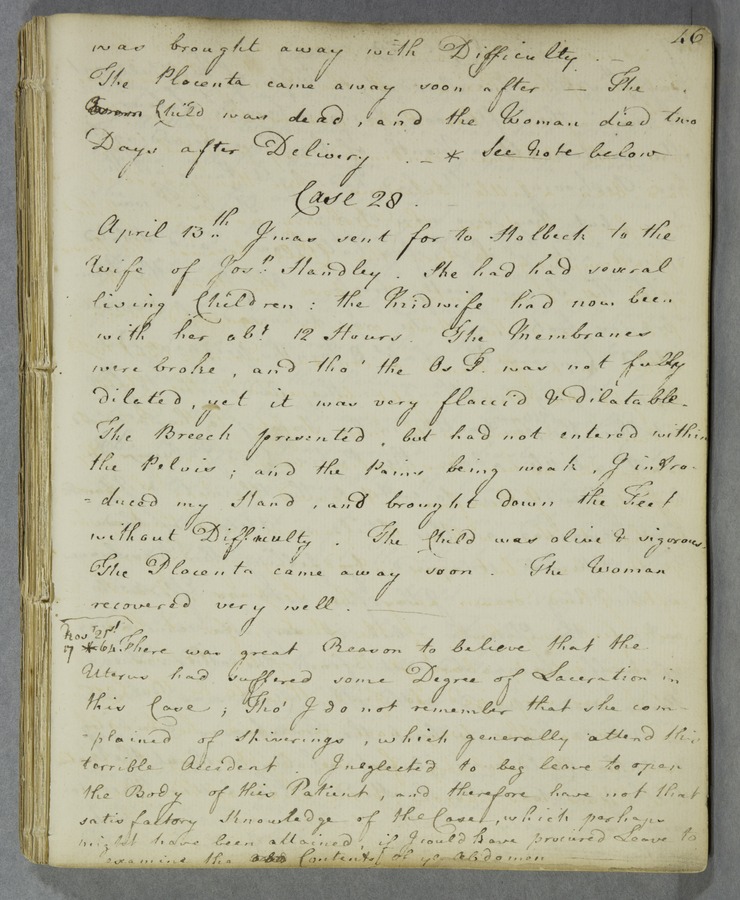 46
was brought away with Difficulty. —
The Placenta came away soon after — The
Child was dead, and the Woman died two
Days after Delivery. — * See Note below
Case 28.
April 13th I was sent for to Holbeck to the
Wife of Josh. Handley. She had had several
living Children: the Midwife had now been
with her abt. 12 Hours. The Membranes
were broke, and tho' the Os T. was not fully
dilated, yet it was very flaccid & dilatable.
The Breech presented, but had not entered within
the Pelvis; and the Pains being weak, I intro-
=duced my Hand, and brought down the Feet
without Difficulty. The Child was alive & vigorous.
The Placenta came away soon. The Woman
recovered very well.
Novr 21st
* There was great Reason to believe that the
Uterus had suffered some Degree of Laceration in
this Case; Tho' I do not remember that she com-
-plained of Shiverings, which generally attend this
terrible Accident. I neglected to beg leave to open
the Body of this Patient, and therefore have not that
satisfactory Knowledge of the Case, which perhaps
might have been attained, if I could have procured Leave to
examine the Contents of ye Abdomen